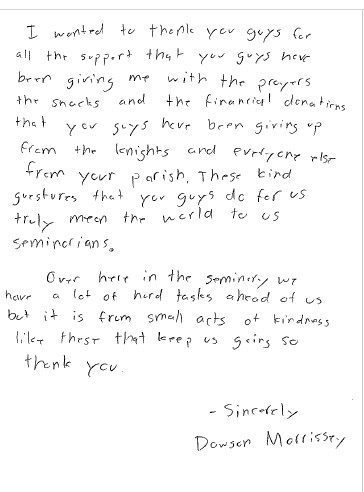 I wanted to thank you guys for
all the support that you guys have
been giving me with the prayers
the snacks and the financial donations
that you guys have been giving up
from the knights and everyone else
from your parish. These kind
guestures that you guys do for us
truly mean the world to us
seminarians.
Over here in the seminary we
have a lot of hard tasks ahead of us
but it is from small acts of kindness
like these that keep us going so
thank you.
- Sincerely
Dawson Morrissey